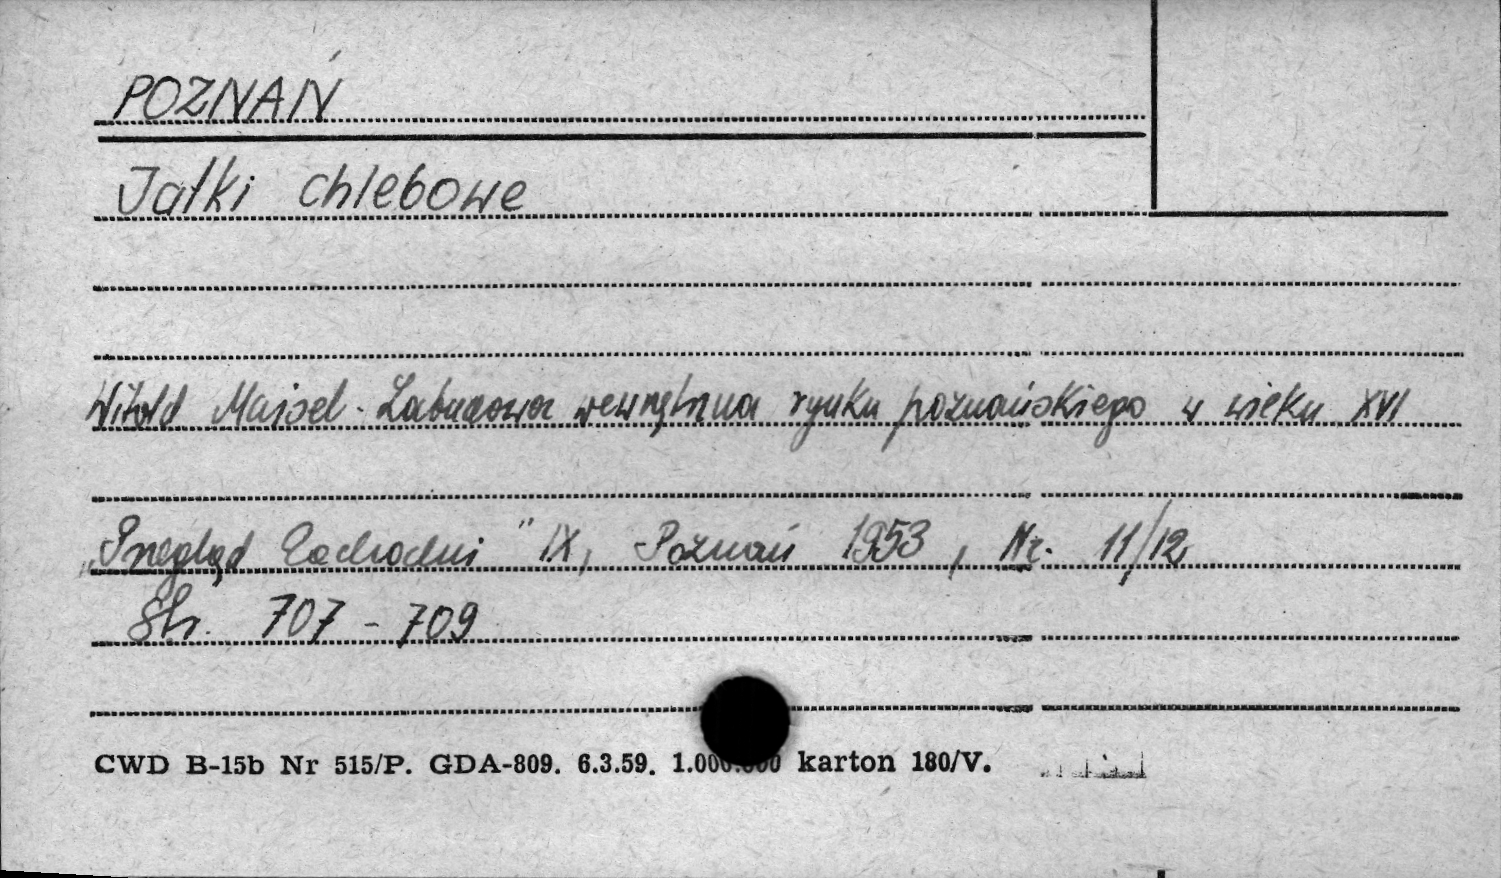 POZNAŃ
Jatki chlebowe
Witold Maisel - Zabudowa wewnętrzna rynku poznańskiego w wieku XVI
„Przegląd Zachodni" IX, Poznań 1953, Nr. 11/12
Str. 707 - 709
CWD B-15b Nr 515/P. GDA-809. 6.3.59. 1.000.000 karton 180/V.